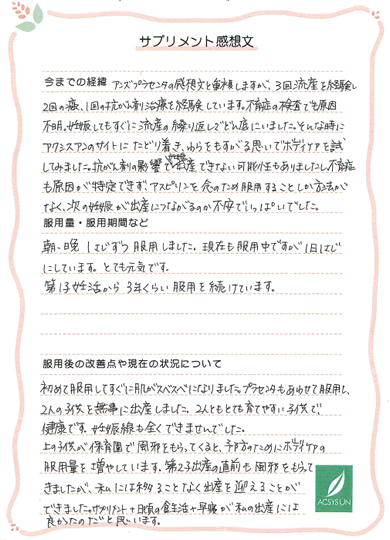 サプリメント感想文
今までの経緯 アンズプラセンタの感想文と重複しますが、3回流産を経験し
2回の癌、1回の抗がん剤治療を経験しています。不育症の検査でも原因
不明。妊娠してもすぐに流産の繰り返しでどん底にいました。そんな時に
アクシスアンのサイトにたどり着き、わらをもすがる思いでボディケアを試
してみました。抗がん剤の影響で出産できない可能性もありましたし、不育症
も原因が特定できず、アスピリンを念のため服用することしか方法が
なく、次の妊娠が出産につながるのか不安でいっぱいでした。
服用量・服用期間など
朝・晩 1はじずつ服用しました。現在も服用中ですが1日1はじ
にしています。とても元気です。
第1子妊活から3年くらい服用を続けています。
服用後の改善点や現在の状況について
初めて服用してすぐに肌がスベスベになりました。プラセンタもあわせて服用し、
2人の子供を無事に出産しました。2人ともとても育てやすい子供で
健康です。妊娠線も全くできませんでした。
上の子供が保育園で風邪をもらってくると、予防のためにボディケアの
服用量を増やしています。第2子出産の直前も風邪をもらって
きましたが、私には移ることなく出産を迎えることが
できました。サプリメント+日頃の食生活+早寝が私の出産には
良かったのだと思います。
ACSYSUN